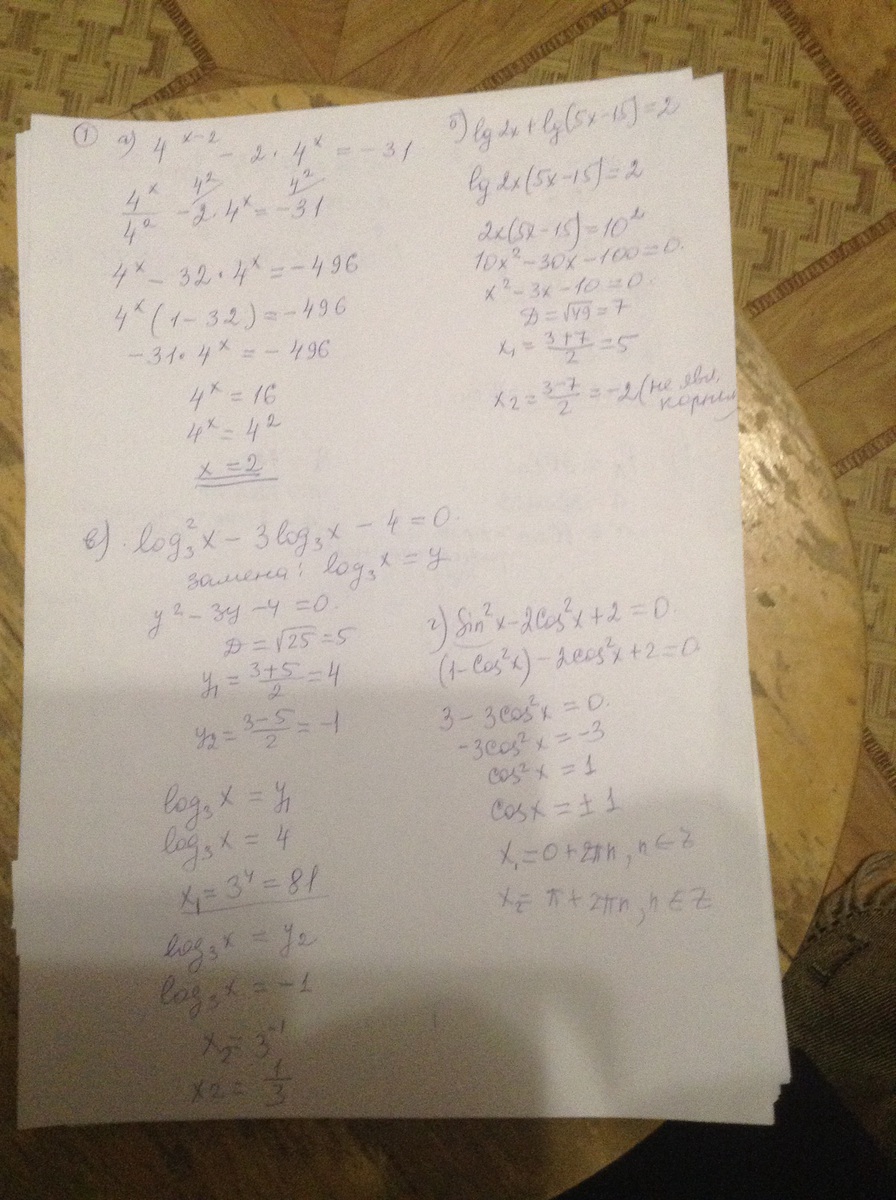 ① а) 4^(x-2) - 2 · 4^x = -31
4^x/4^2 - 2 · 4^x = -31 (4^2/ 4^2/)
4^x - 32 · 4^x = -496
4^x (1 - 32) = -496
-31 · 4^x = -496
4^x = 16
4^x = 4^2
x = 2
б) lg 2x + lg(5x-15) = 2
lg 2x(5x-15) = 2
2x(5x-15) = 10^2
10x^2 - 30x - 100 = 0.
x^2 - 3x - 10 = 0.
D = √49 = 7
x₁ = (3+7)/2 = 5
x₂ = (3-7)/2 = -2 (не явл.
корнем)
в) log₃²x - 3log₃x - 4 = 0.
замена: log₃x = y
y² - 3y - 4 = 0.
D = √25 = 5
y₁ = (3+5)/2 = 4
y₂ = (3-5)/2 = -1
log₃x = y₁
log₃x = 4
x₁ = 3⁴ = 81
log₃x = y₂
log₃x = -1
x₂ = 3⁻¹
x2 = 1/3
г) sin²x - 2cos²x + 2 = 0.
(1-cos²x) - 2cos²x + 2 = 0.
3 - 3cos²x = 0.
-3cos²x = -3
cos²x = 1
cosx = ±1
x₁ = 0 + 2πn, n ∈ Z
x₂ = π + 2πn, n ∈ Z